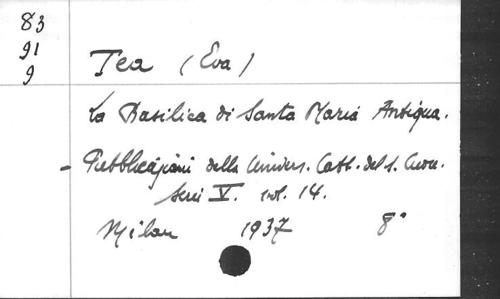 83
91
9
Tea (Eva)
La Basilica di Santa Maria Antiqua.
- Pubblicazioni della Univers. Catt. del S. Cuore.
Serie V. vol. 14.
Milan 1937 8°